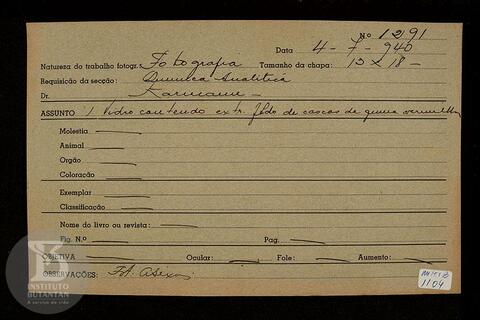 Nº 1291
Data 4-7-940
Natureza do trabalho fotogr.: Fotografia Tamanho da chapa: 13 x 18 -
Requisição da secção: Quimica Analitica
Dr.
ASSUNTO 1 vidro contendo extr. fldo de cascas de quina vermelha
Molestia
Animal
Orgão
Coloração
Exemplar
Classificação
Nome do livro ou revista:
Fig. N.º Pag.
OBJETIVA Ocular: Fole: Aumento:
OBSERVAÇÕES: Fot.
1104
INSTITUTO
BUTANTAN
A serviço da vida